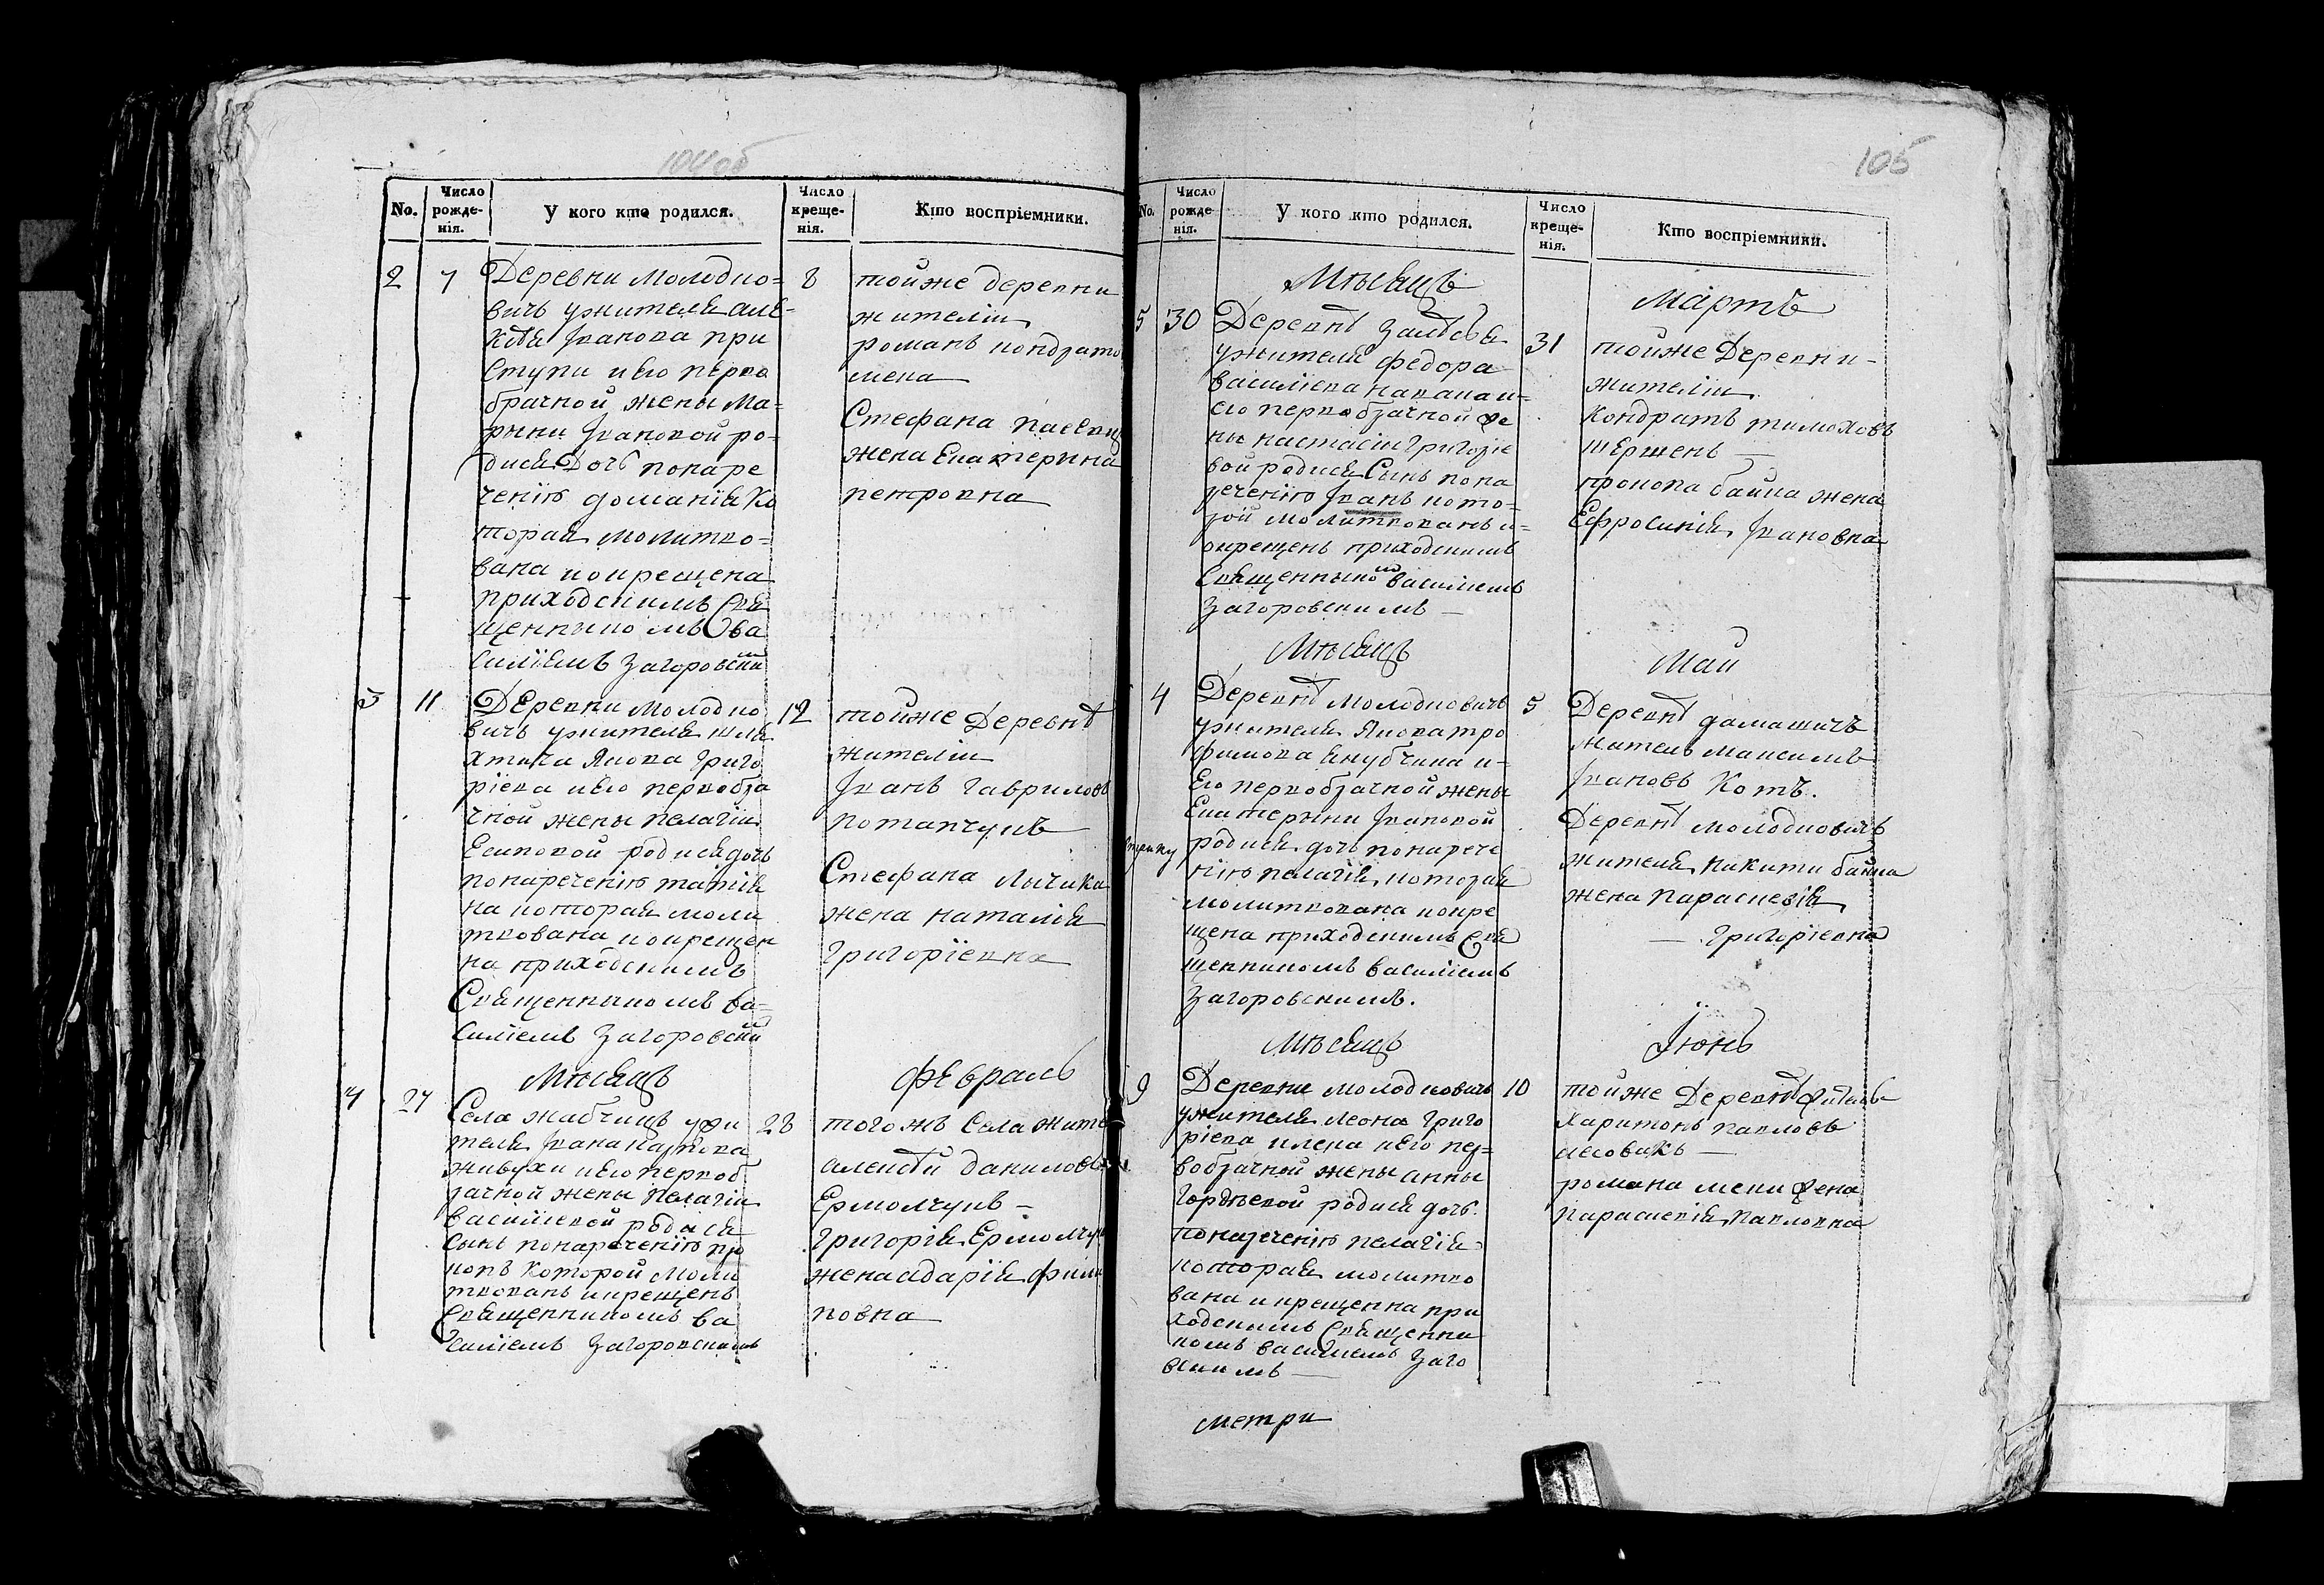 104об
No.
Число рожде-нія.
У кого кто родился.
Число креще-нія.
Кто воспріемники.
2 7 8
Деревни Молодно=
вичъ ужителя але=
Ивакова при
Ступи иего перво
брачной жены Ма=
рыни Ивановой ро=
дися Дочь понаре
ченію доманія Ко
торая молитво=
вана иокрещена
приходскимъ Свя
щенникомъ Ва
силіемъ Загоровски
тойже деревни
жители
романъ кондрато
мена
Стефана
жена Екатерина
петровна
3 11 12
Деревни Молодно
вичъ ужителя шля
хтича Якова Григо
ріева иего первобра
чной жены пелагіи
Есиповой родися дочь
понареченію татія
на которая моли
твована иокрещен
на приходскимъ
Священникомъ Ва=
силіемъ Загоровски
тойже Деревнѣ
жители
Иванъ Гавриловъ
потапчукъ
Стефана Лычика
жена наталія
Григоріевна
Мѣсяцъ
Февраль
4 27 28
Села жабчицъ ужи
теля Ивана
живухи иего первоб
рачной жены пелагіи
василіевой родися
Сынъ понареченію про
копъ Которой Моли
твованъ икрещенъ
Священникомъ Ва
силіемъ Загоровскимъ
тогожъ Села жите
алексѣй даниловъ
Ермолчукъ —
Григорія Ермолчук
жена адарія фили
повна
105
No.
Число рожде нія.
У кого кто родился.
Число креще-нія.
Кто воспріемники.
Мѣсяцъ
Мартъ
5 30 31
Деревнѣ
ужителя федора
василіева накана и=
его первобрачной же
ны настасіи Григоріе
вой родися Сынъ пона
реченію Иванъ кото=
рой Молитвованъ и=
окрещенъ приходскимъ
Священникомъ василіемъ
Загоровскимъ —
тойже Деревни —
жители
Кондратъ тимоховъ
шершень —
прокопа байка жена
Ефросинія Ивановна
Мѣсяцъ
Май
4 5
Деревнѣ Молодновичъ
ужителя Якова тро
фимова якубчика и=
Его первобрачной жены
Екатерыни Ивановой
родися дочь понарече
нію пелагія, которая
молитвована иокре
щена приходскимъ Свя
щенникомъ василіемъ
Загоровскимъ.
Деревнѣ дамашичъ
житель Максимъ
Ивановъ Котъ.
Деревнѣ молодновичъ
жителя никити байка
жена Параскевія
— Григоріевна
Мѣсяцъ
Іюнь
9 10
Деревни Молодновичъ
ужителя Леона Григо
ріева мена иего пер=
вобрачной жены анны
Гордѣевой родися дочь
понареченію пелагія
которая молитво
вана икрещенна при
ходскимъ Священни
комъ василіемъ Заго
скимъ —
тойже Деревнѣ житель
Харитонъ Павловъ
лесовикъ —
романа мени жена
Параскевія Павловна
метри